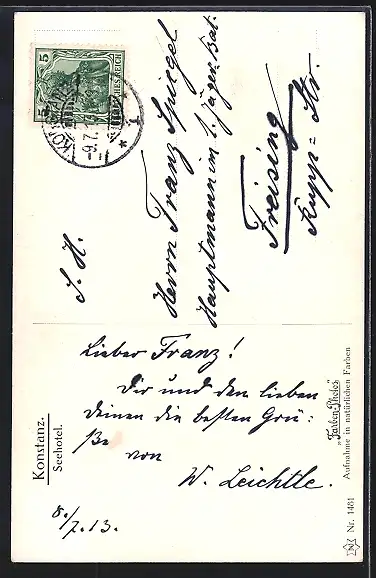 5 5
DEUTSCHES REICH
KONSTANZ
-9.7.
* 1
S. H.
Herrn Franz Spiegel
Hauptmann im 1. Jäger Bat.
Freising
Kupp=Str.
Konstanz.
Seehotel.
Lieber Franz!
Dir und den lieben
Deinen die besten Grü=
ße
von
W. Leichtle.
8./7.13.
„Farben-Photos"
Aufnahme in natürlichen Farben
Nr. 1461